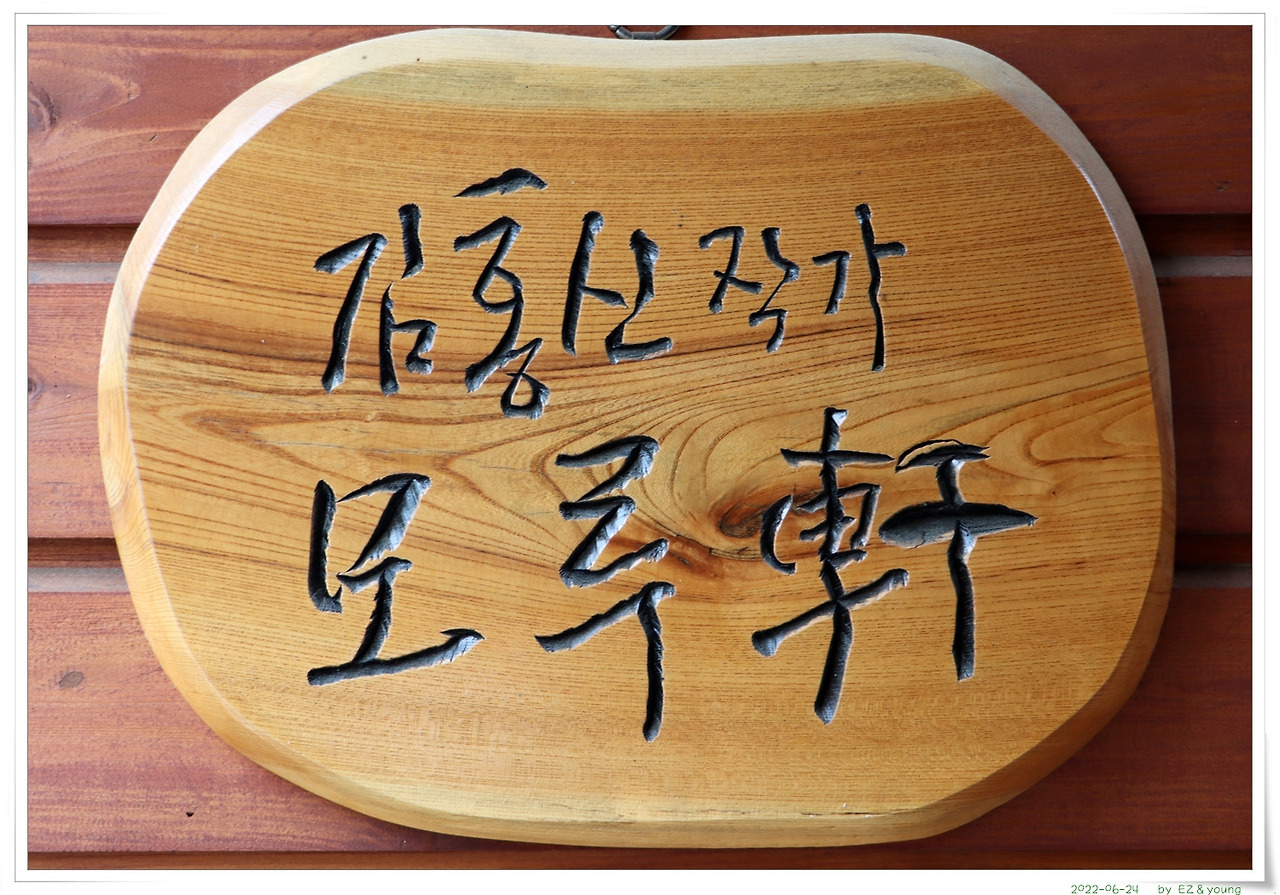 김홍신 작가
모루軒
2022-06-24 by EZ & young